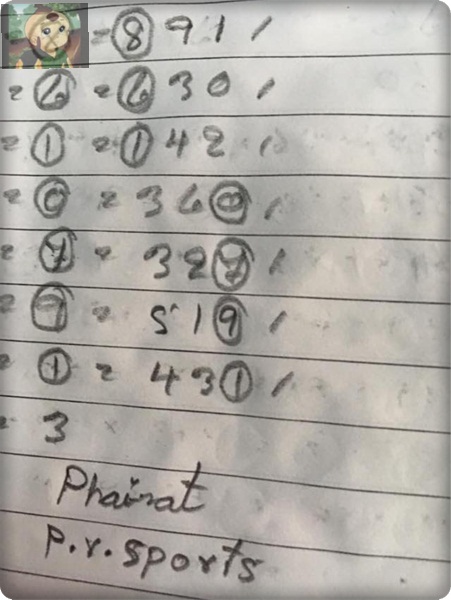 = 8 9 1 /
= 6 = 6 3 0 /
= 1 = 1 4 2 /
= 0 = 3 6 0 /
= 7 = 3 2 7 /
= 9 = 5 1 9 /
= 1 = 4 3 1 /
= 3
Phairat
P.r.sports